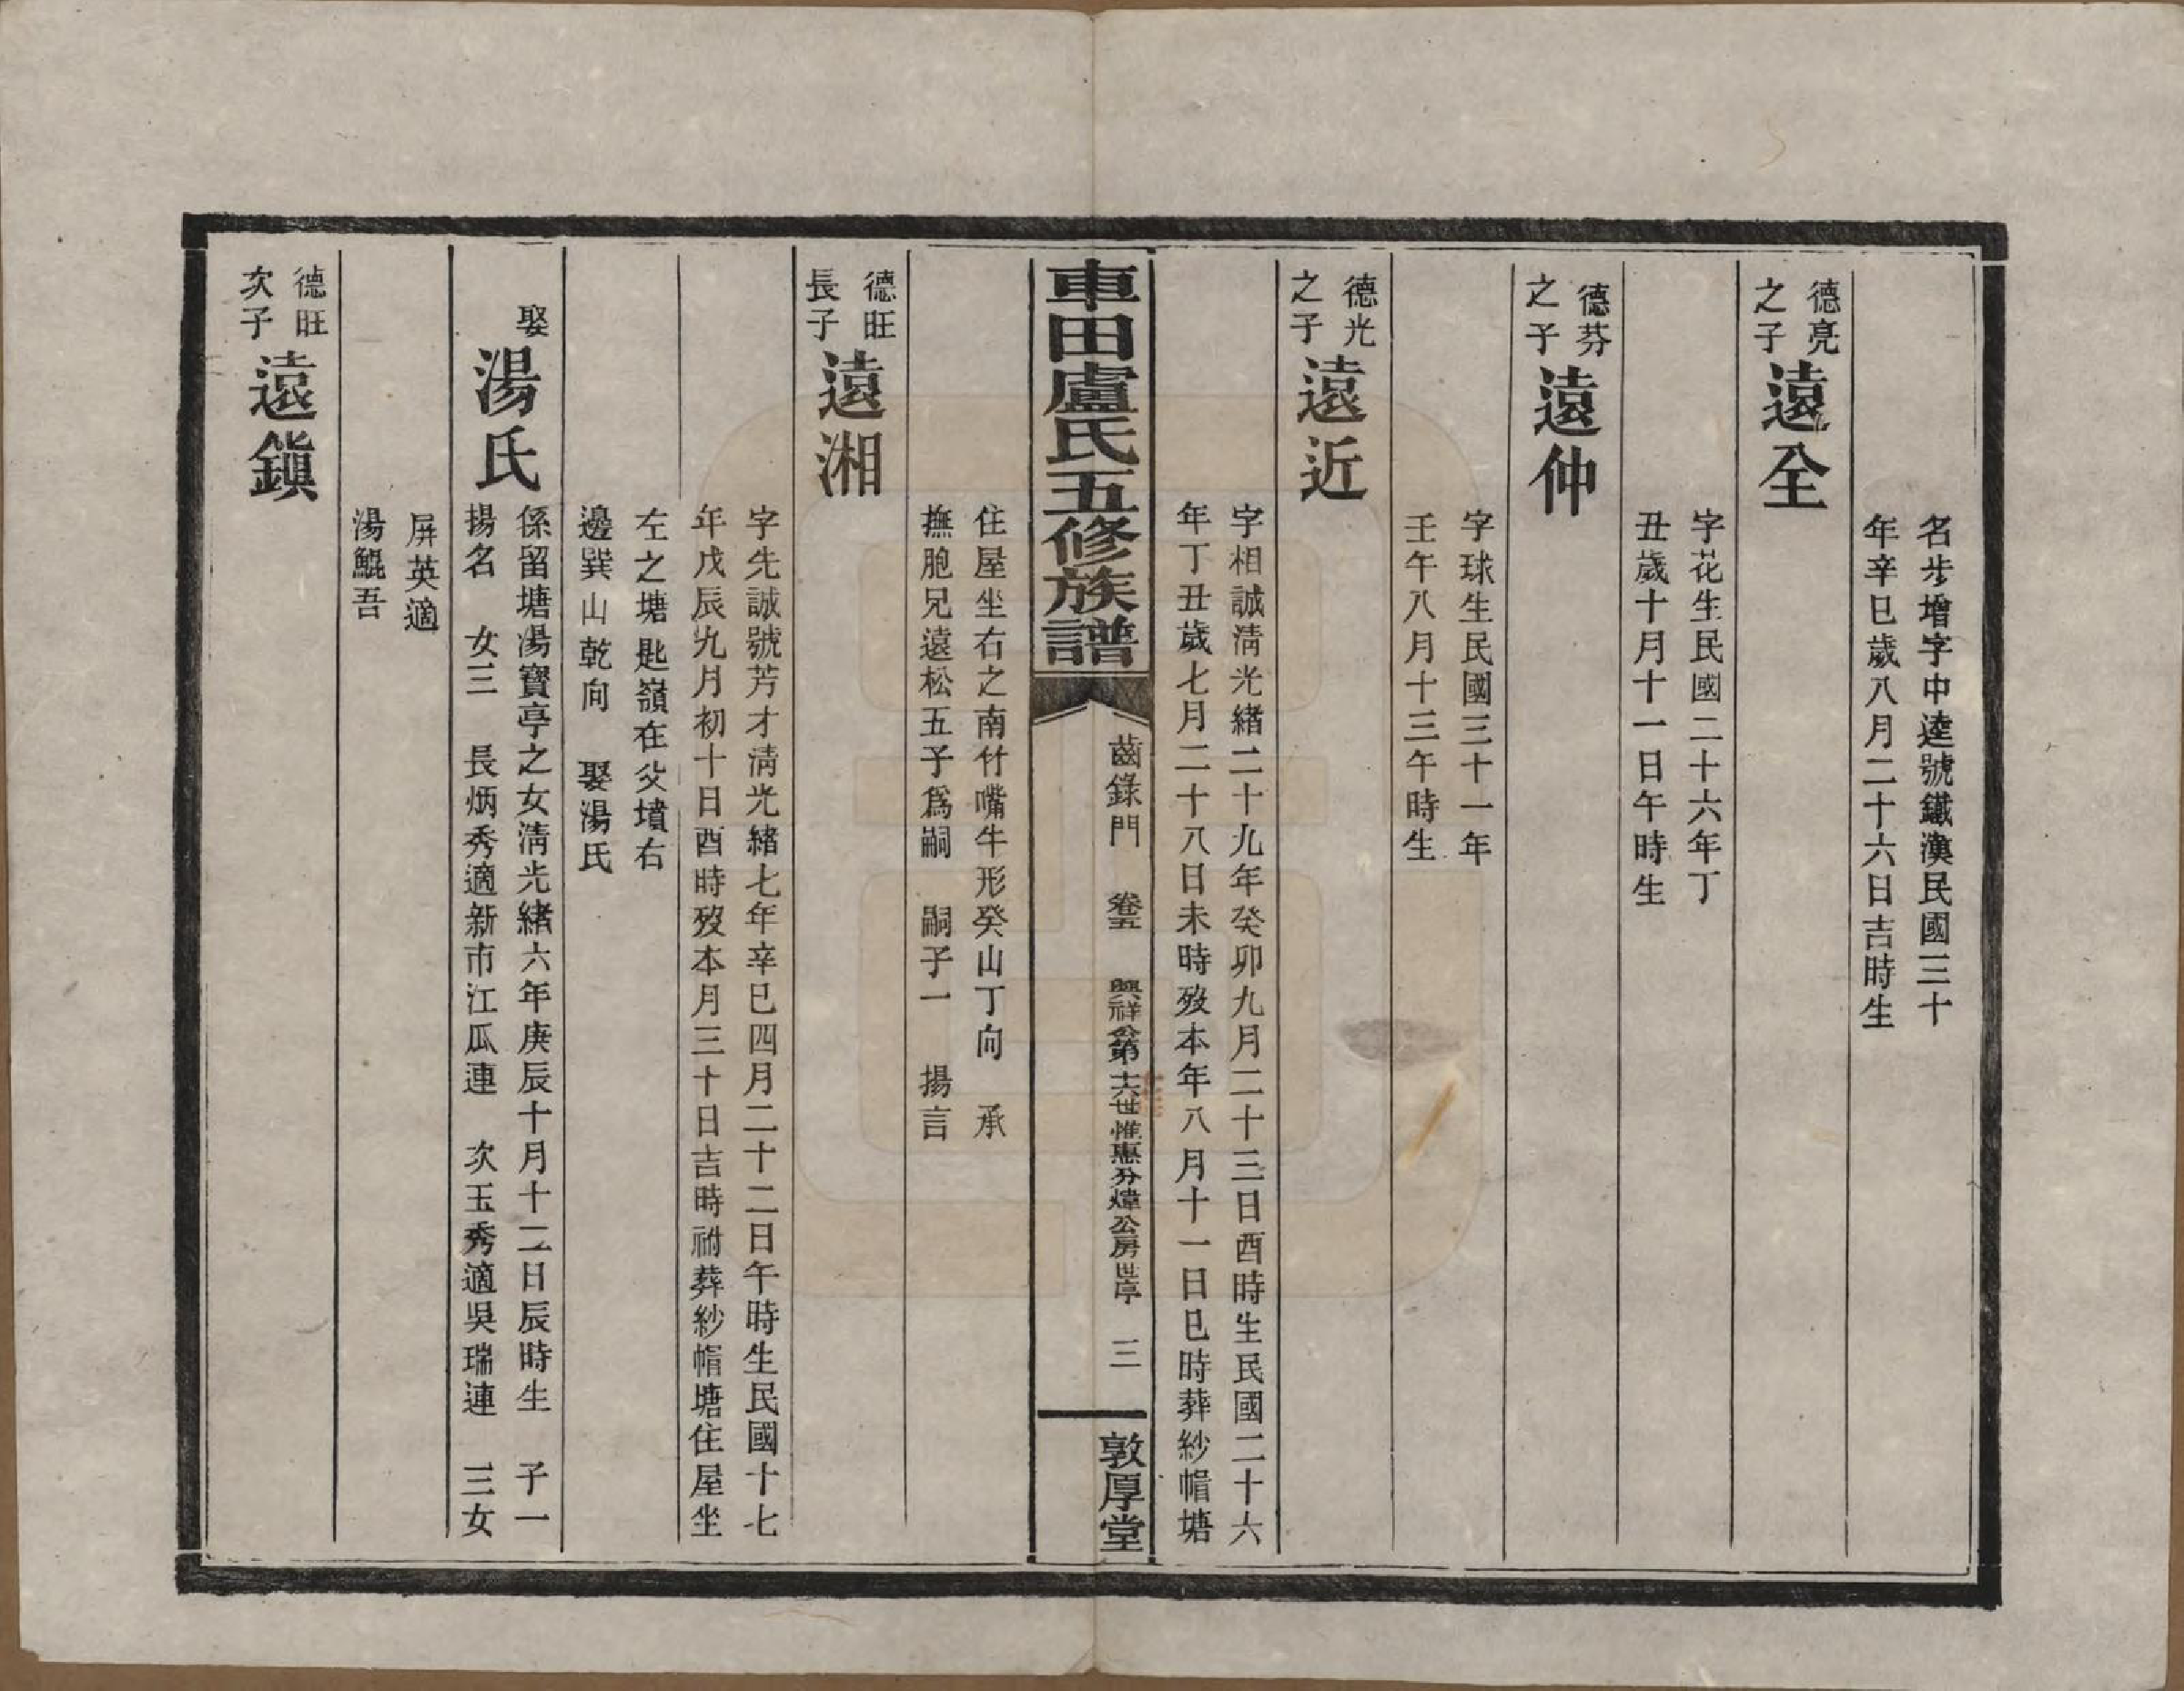 名步增字中逵號鐵漢民國三十
年辛巳歲八月二十六日吉時生
德亮
之子
遠全
字花生民國二十六年丁
丑歲十月十一日午時生
德芬
之子
遠仲
字球生民國三十一年
壬午八月十三午時生
德光
之子
遠近
字相誠清光緒二十九年癸卯九月二十三日酉時生民國二十六
年丁丑歲七月二十八日未時歿本年八月十一日巳時葬紗帽塘
車田盧氏五修族譜
齒錄門 卷五 興祥公第十六世惟惠分煒公房世序 三
敦厚堂
住屋坐右之南竹嘴牛形癸山丁向 承
撫胞兄遠松五子為嗣 嗣子一 揚言
德旺
長子
遠湘
字先誠號芳才清光緒七年辛巳四月二十二日午時生民國十七
年戊辰九月初十日酉時歿本月三十日吉時祔葬紗帽塘住屋坐
左之塘匙嶺在父墳右
邊巽山乾向 娶湯氏
娶
湯氏
係留塘湯寶亭之女清光緒六年庚辰十月十二日辰時生 子一
揚名 女三 長炳秀適新市江瓜連 次玉秀適吳瑞連 三女
屏英適
湯鯤吾
德旺
次子
遠鎭